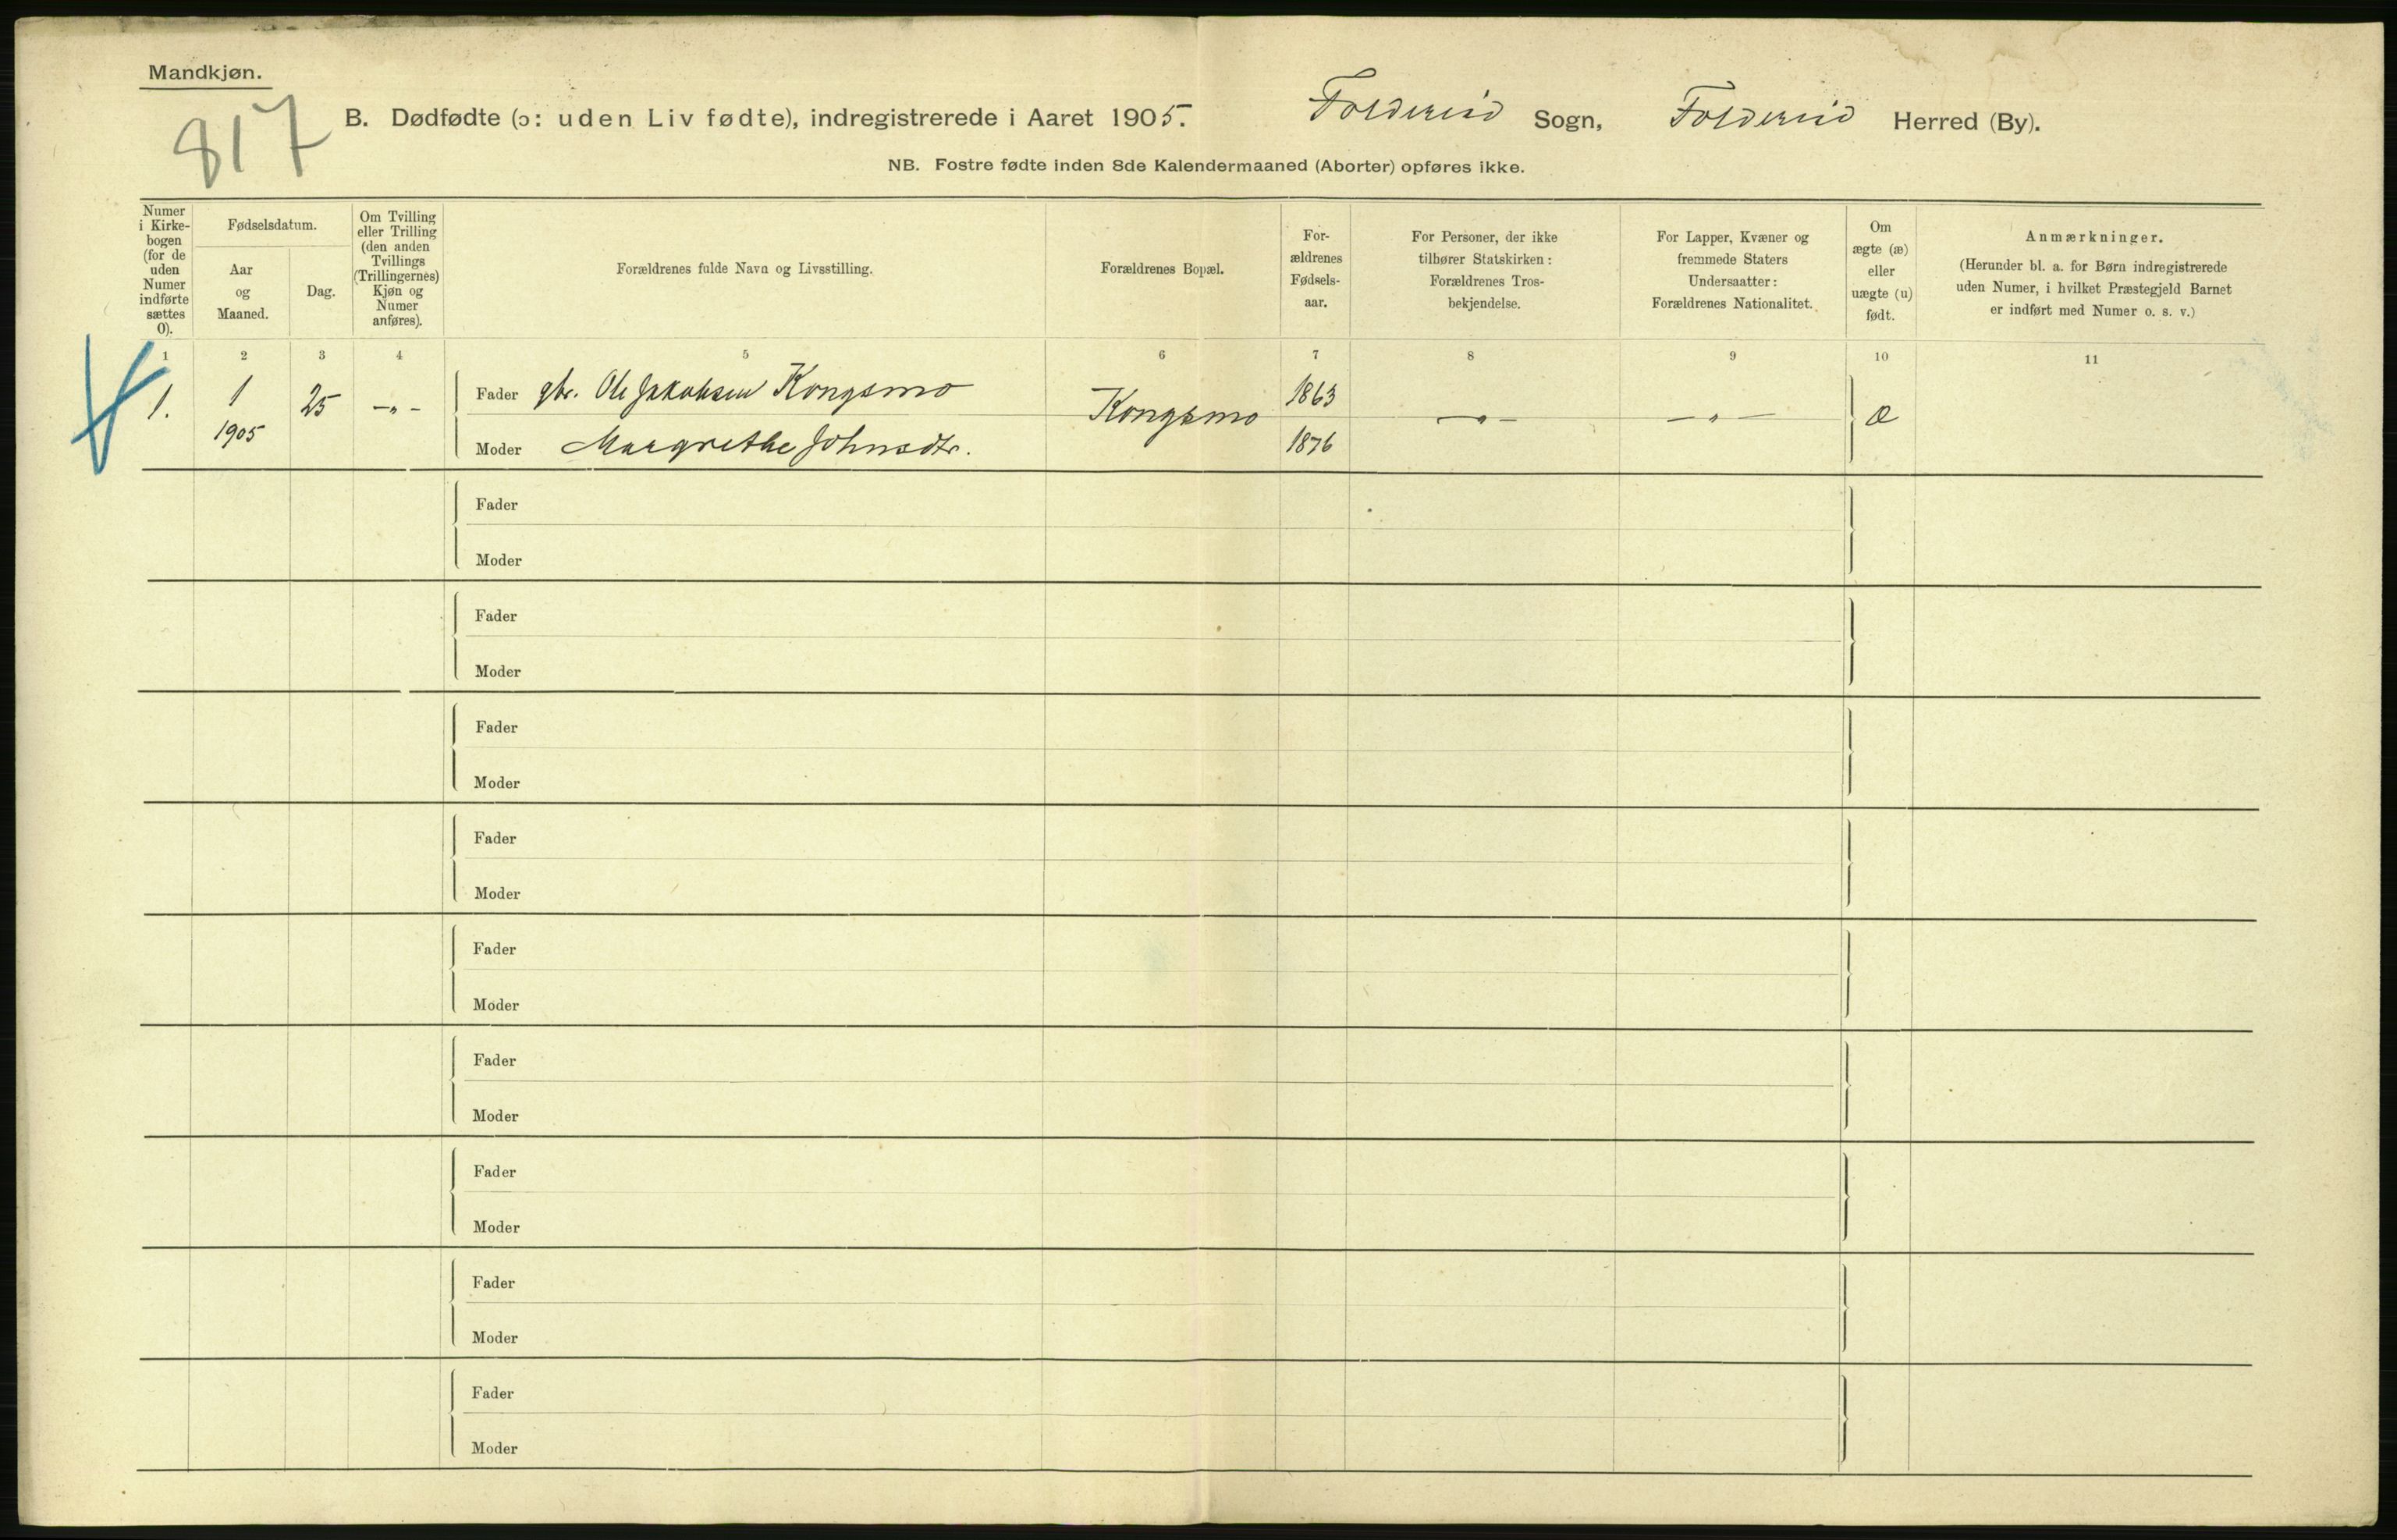 Mandkjøn.
817
B. Dødfødte (ɔ: uden Liv fødte), indregistrerede i Aaret 1905. Foldereid Sogn, Foldereid Herred (By).
NB. Fostre fødte inden 8de Kalendermaaned (Aborter) opføres ikke.
Numer
i Kirke-
bogen
(for de
uden
Numer
indførte
sættes
0).
Fødselsdatum.
Aar
og
Maaned.
Dag.
Om Tvilling
eller Trilling
(den anden
Tvillings
(Trillingernes)
Kjøn og
Numer
anføres).
Forældrenes fulde Navn og Livsstilling.
Forældrenes Bopæl.
For-
ældrenes
Fødsels-
aar.
For Personer, der ikke
tilhører Statskirken:
Forældrenes Tros-
bekjendelse.
For Lapper, Kvæner og
fremmede Staters
Undersaatter:
Forældrenes Nationalitet.
Om
ægte (æ)
eller
uægte (u)
født.
Anmærkninger.
(Herunder bl. a. for Børn indregistrerede
uden Numer, i hvilket Præstegjeld Barnet
er indført med Numer o. s. v.)
1 2 3 4 5 6 7 8 9 10 11
1. 1 1905 25 -„- Fader gbr. Ole Jakobsen Kongsmo Kongsmo 1863 -„- -„- æ
Moder Margrethe Johnsdtr. 1876
Fader
Moder
Fader
Moder
Fader
Moder
Fader
Moder
Fader
Moder
Fader
Moder
Fader
Moder
Fader
Moder
Fader
Moder